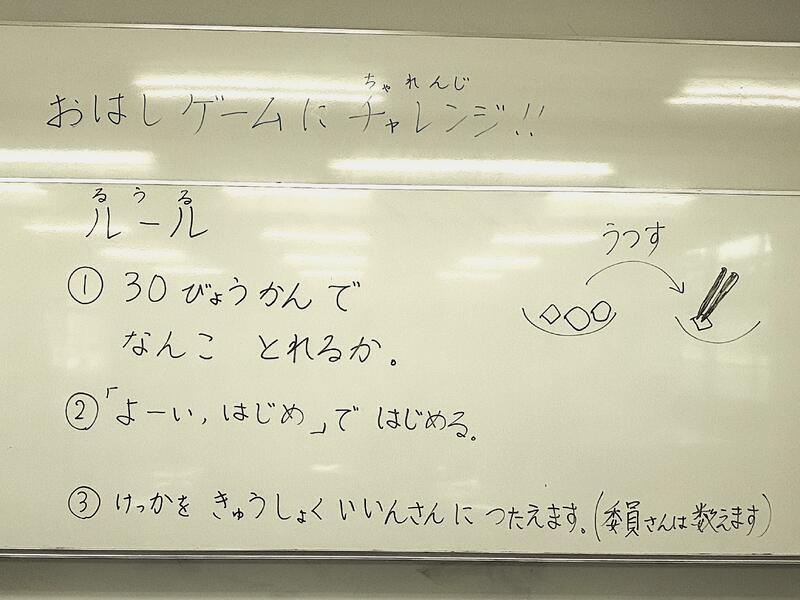 ちゃれんじ
おはしゲームにチャレンジ!!
るうる
ルール
うつす
① 30びょうかんで
なんこ とれるか。
②「よーい,はじめ」ではじめる。
③ けっかを きゅうしょくいいんさんに つたえます。(委員さんは数えます)